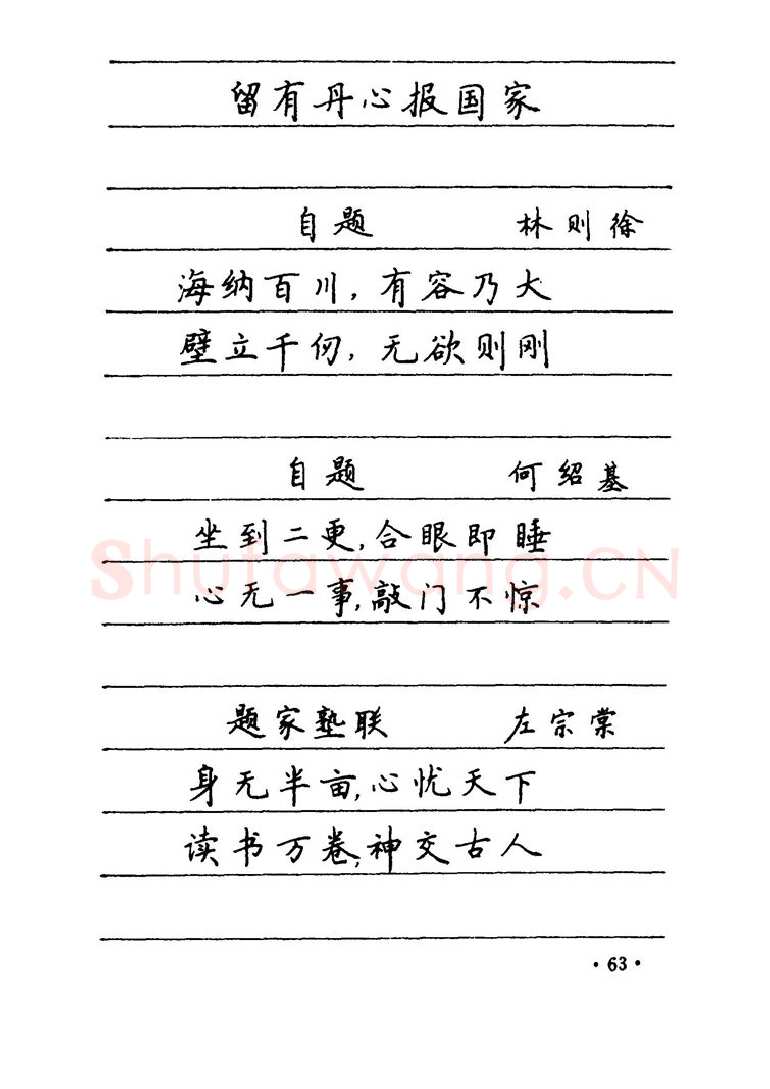 留有丹心报国家
自题 林则徐
海纳百川,有容乃大
壁立千仞,无欲则刚
自题 何绍基
坐到二更,合眼即睡
心无一事,敲门不惊
Shufawang.CN
题家塾联 左宗棠
身无半亩,心忧天下
读书万卷,神交古人
·63·